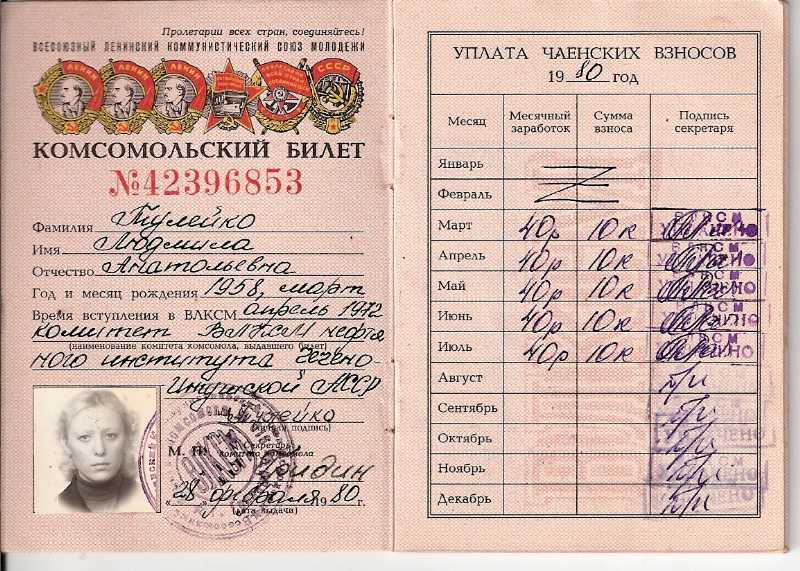 Пролетарии всех стран, соединяйтесь!
ВСЕСОЮЗНЫЙ ЛЕНИНСКИЙ КОММУНИСТИЧЕСКИЙ СОЮЗ МОЛОДЕЖИ
ЛЕНИН ЛЕНИН ЛЕНИН СССР
КОМСОМОЛЬСКИЙ БИЛЕТ
№42396853
Фамилия Тулейко
Имя Людмила
Отчество Анатольевна
Год и месяц рождения 1958, март
Время вступления в ВЛКСМ апрель 1972
комитет ВЛКСМ нефтя
(наименование комитета комсомола, выдавшего билет)
ного института Чечено-
Ингушской АССР
Тулейко
(личная подпись)
М. П. Секретарь
комитета комсомола
"28" февраля 1980 г.
(дата выдачи)
УПЛАТА ЧЛЕНСКИХ ВЗНОСОВ
1980 год
Месяц Месячный заработок Сумма взноса Подпись секретаря
Январь
Февраль
Март 40р 10к
Апрель 40р 10к
Май 40р 10к
Июнь 40р 10к
Июль 40р 10к
Август
Сентябрь
Октябрь
Ноябрь
Декабрь